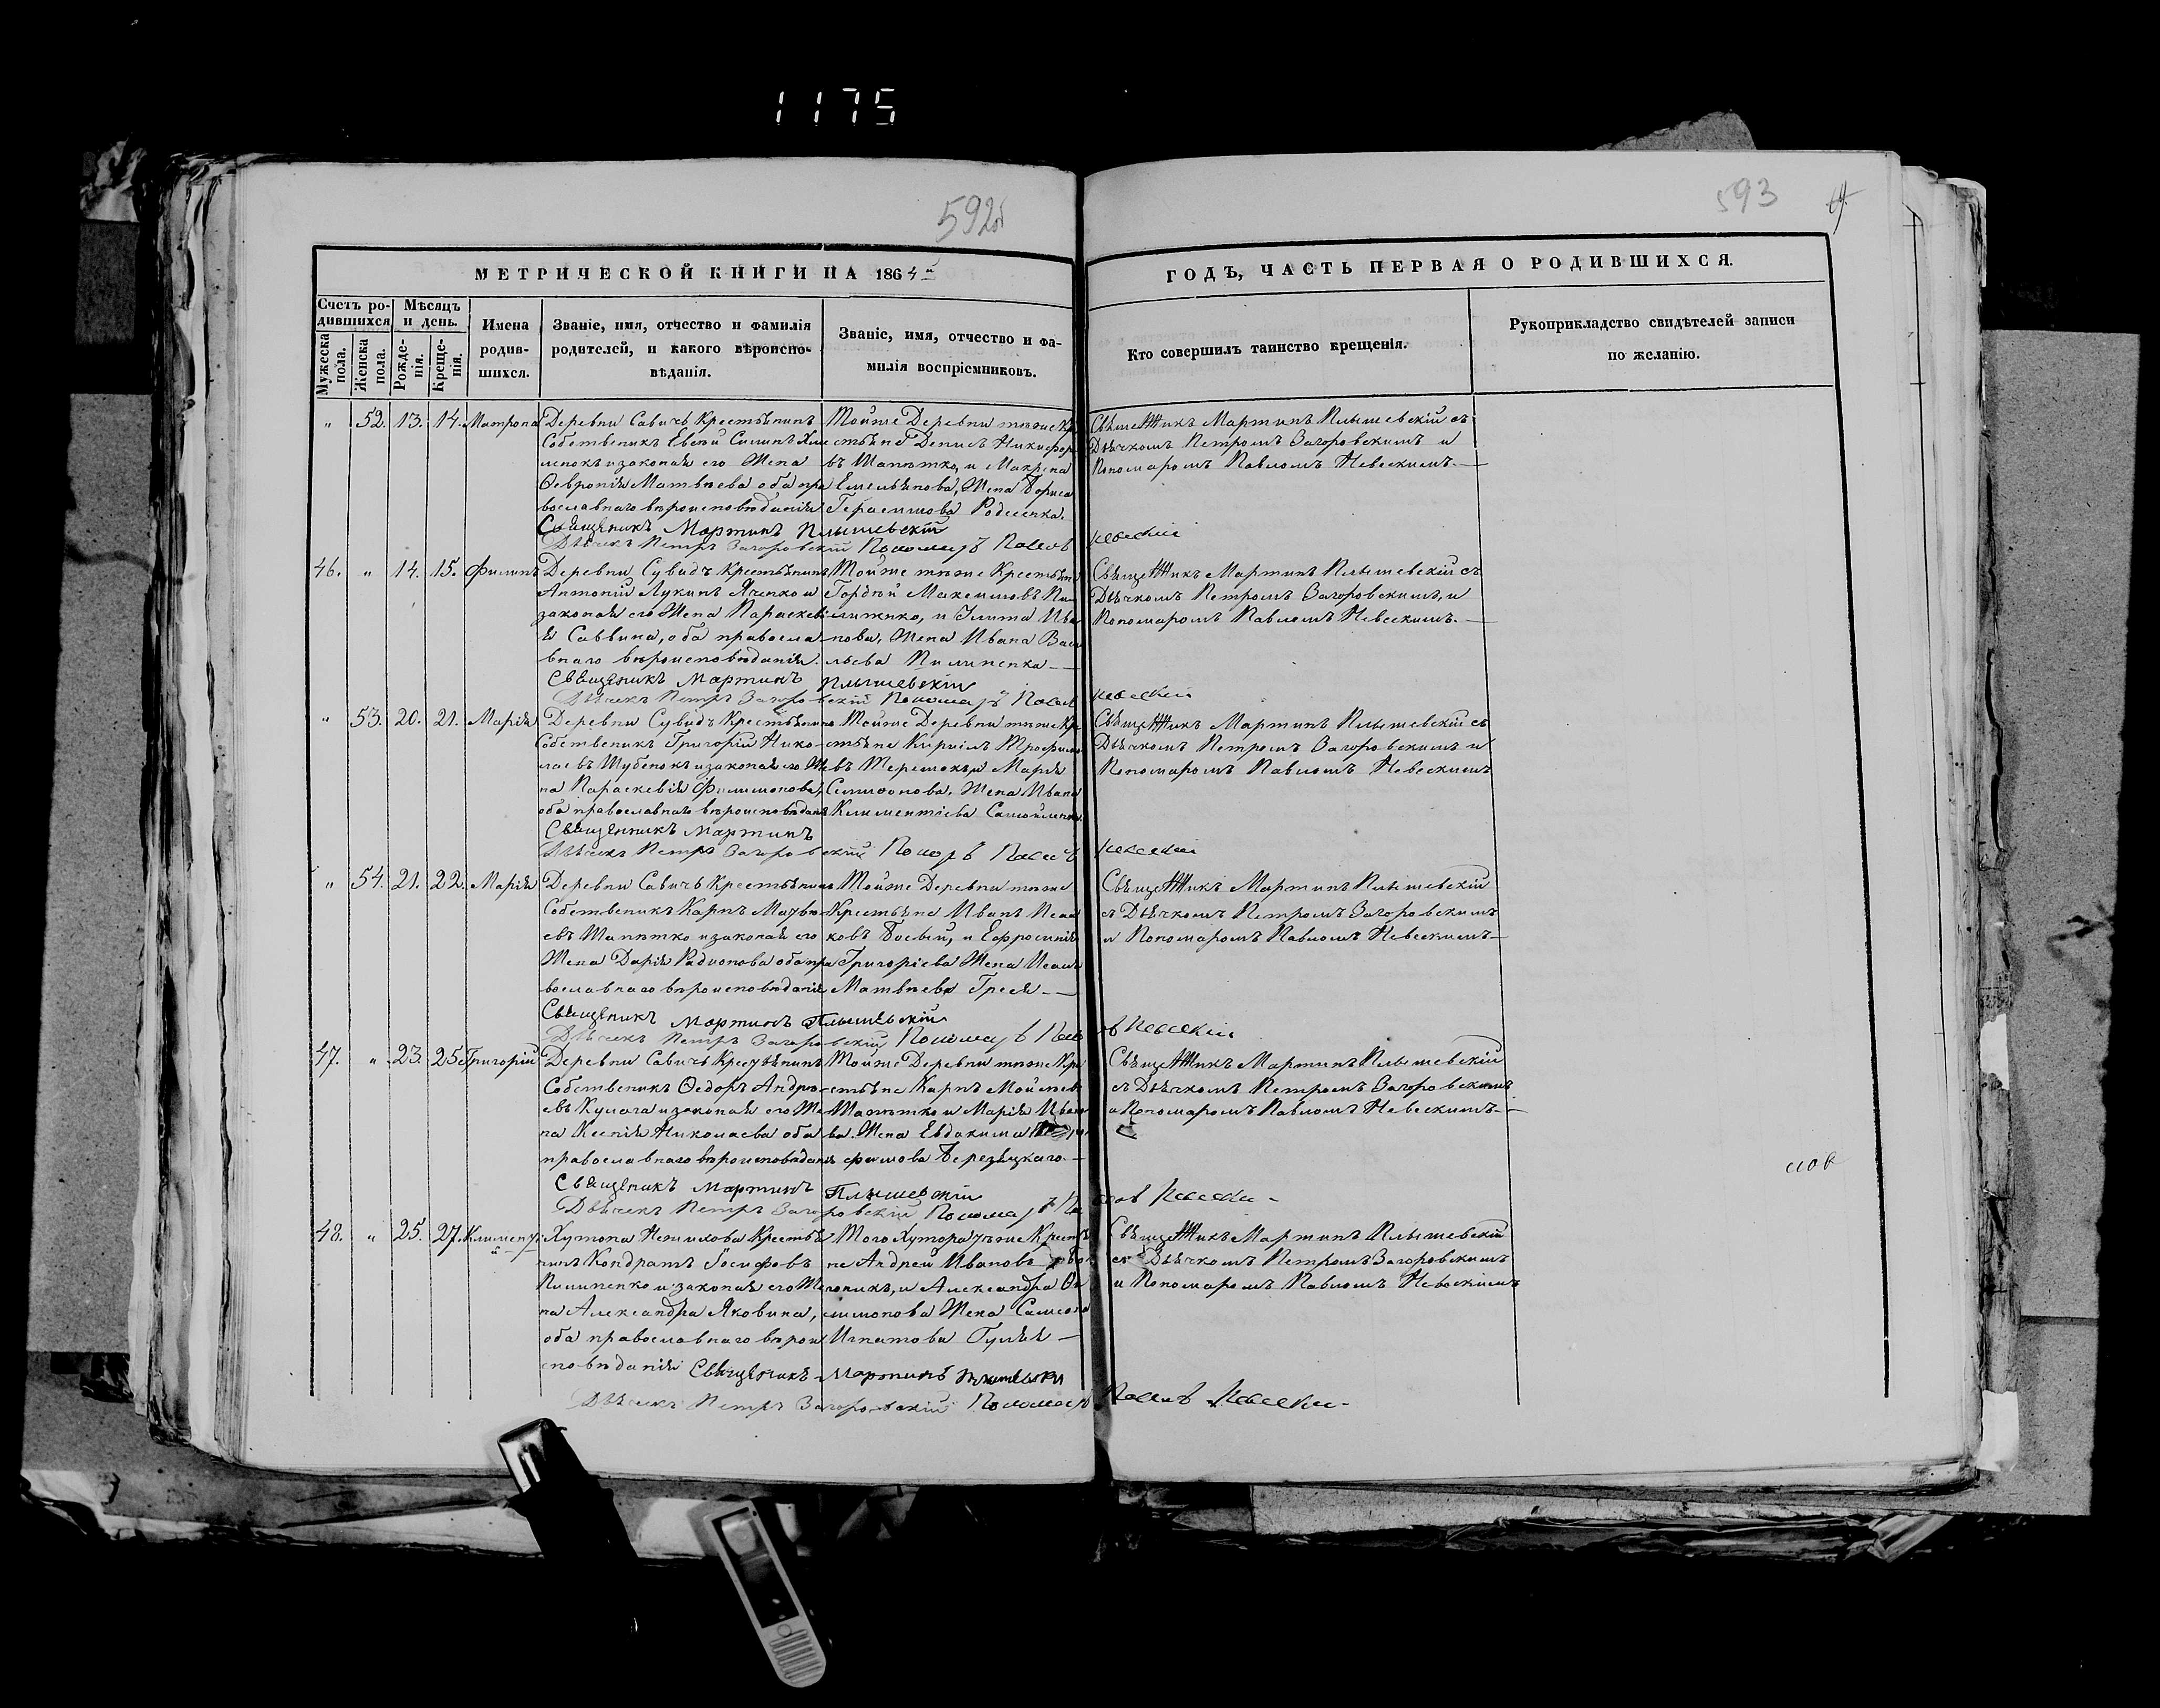 1175
592об
593
МЕТРИЧЕСКОЙ КНИГИ НА 1864й
ГОДЪ, ЧАСТЬ ПЕРВАЯ О РОДИВШИХСЯ.
Счетъ родившихся
Мужеска пола.
Женска пола.
Мѣсяцъ и день.
Рожденія.
Крещенія.
Имена родившихся.
Званіе, имя, отчество и фамилія
родителей, и какого вѣроиспо-
вѣданія.
Званіе, имя, отчество и фа-
милія воспріемниковъ.
Кто совершилъ таинство крещенія.
Рукоприкладство свидѣтелей записи
по желанію.
" 52. 13. 14. Матрона
Деревни Савичъ Крестьянинъ
Собственикъ Евсѣй Силинъ
и законая его Жена
Ѳевронія Матвѣева оба пра
вославнаго вѣроисповѣданія
Тойже Деревни тѣже Кре
стьяне Денисъ Никифоро
въ Шапѣтко, и Макрина
Емельянова, Жена Бориса
Герасимова Роденка.
Священикъ Мартинъ Плышевскій съ
Дьячкомъ Петромъ Загоровскимъ и
Пономаромъ Павломъ Невскимъ.
Священикъ Мартинъ Плышевскій
Дьячекъ Петръ Загоровскій Пономарь Павелъ Невскій
46. " 14. 15. Филипъ
Деревни Сувидъ Крестьянинъ
Антоній Лукинъ Яченко и
законая его Жена Параскеві
я Саввина, оба правосла
внаго вѣроисповѣданія.
Тойже тѣже Крестьяне
Гордѣй Максимовъ Пи
лиженко, и Улита Ива
нова, Жена Ивана Васи
льева Пилипенка
Священикъ Мартинъ Плышевскій съ
Дьячкомъ Петромъ Загоровскимъ, и
Пономаромъ Павломъ Невскимъ.
Священикъ Мартинъ Плышевскій
Дьячекъ Петръ Загоровскій Пономарь Павелъ Невскій
" 53. 20. 21. Марія
Деревни Сувидъ Крестьянинъ
Собственикъ Григорій Нико-
лаевъ Шубенокъ и законая его Же
на Параскевія Филимонова,
оба православнаго вѣроисповѣданія
Тойже Деревни тѣже Кре
стьяне Кирилъ Трофимо
въ Терешокъ и Марія
Симеонова, Жена Ивана
Климентіева Самойленка.
Священикъ Мартинъ Плышевскій съ
Дьячкомъ Петромъ Загоровскимъ и
Пономаромъ Павломъ Невскимъ
Священникъ Мартинъ
Дьячекъ Петръ Загоровскій Павелъ Невскій
" 54. 21. 22. Марія
Деревни Савичъ Крестьянинъ
Собственикъ Карпъ Матвѣ-
евъ Шапѣтко и законая его
Жена Дарія Радионова оба пра
вославнаго вѣроисповѣданія
Тойже Деревни тѣже
Крестьяне Иванъ Исаа
ковъ Боевый, и Ефросинія
Григоріева Жена Исаака
Матвѣева
Священикъ Мартинъ Плышевскій
съ Дьячкомъ Петромъ Загоровскимъ
и Пономаромъ Павломъ Невскимъ
Священикъ Мартинъ Плышевскій
Дьячекъ Петръ Загоровскій Пономарь Павелъ Невскій
47. " 23. 25. Григорій
Деревни Савичъ Крестьянинъ
Собственикъ Ѳедоръ Андрѣ-
евъ Кулага и законая его Же
на Ксенія Николаева оба
православнаго вѣроисповѣданія
Тойже Деревни тѣже Кре
стьяне Карпъ Мойсеевъ
Шапѣтко и Марія Ивано
ва Жена Евдакима
Священикъ Мартинъ Плышевскій
съ Дьячкомъ Петромъ Загоровскимъ
и Пономаромъ Павломъ Невскимъ
Священикъ Мартинъ Плышевскій
Дьячекъ Петръ Загоровскій Пономарь Павелъ Невскій
48. " 25. 27. Климентій
Хутора Крестья
нинъ Кондратъ Іосифовъ
Пилипенко и законая его Же
на Александра Яковина,
оба православнаго вѣрои
сповѣданія
Того Хутора тѣже Крестья
не Андрей Ивановъ
и Александра
Жена
Игнатова Гуляя
Священикъ Мартинъ Плышевскій
съ Дьячкомъ Петромъ Загоровскимъ
и Пономаромъ Павломъ Невскимъ
Священикъ Мартинъ Плышевскій
Дьячекъ Петръ Загоровскій Пономарь Павелъ Невскій